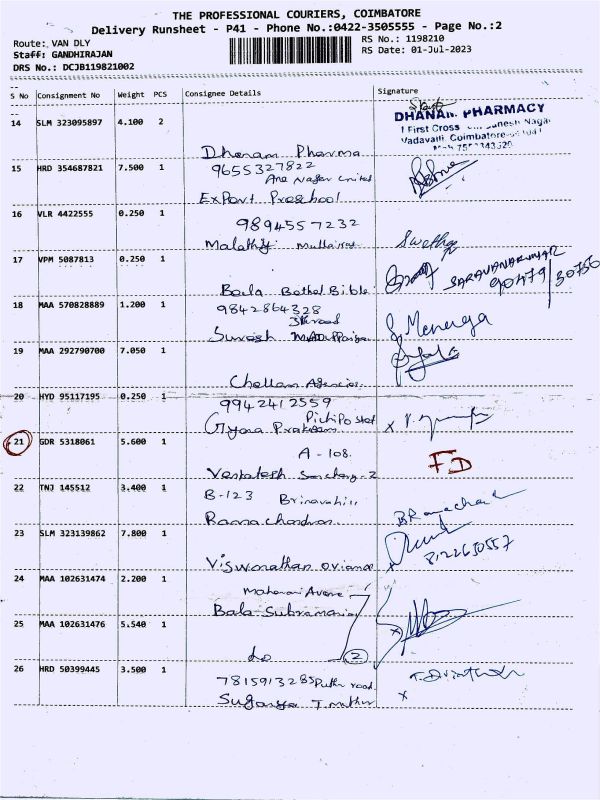 THE PROFESSIONAL COURIERS, COIMBATORE
Delivery Runsheet - P41 - Phone No.:0422-3505555 - Page No.:2
Route: VAN DLY
RS No.: 1198210
Staff: GANDHIRAJAN
RS Date: 01-Jul-2023
DRS No.: DCJB119821002
S No Consignment No Weight PCS Consignee Details Signature
14 SLM 323095897 4.100 2
DHANAM PHARMACY
1 First Cross Ganesh Nagar
Vadavalli, Coimbatore
Dhanam Pharma
15 HRD 354687821 7.500 1
9655327822
Export Preschool
16 VLR 4422555 0.250 1
9894557232
Malathy
Swetha
17 VPM 5087813 0.250 1
SARAVANAKUMAR
90479/30756
Bala Bethel Bible
18 MAA 570828889 1.200 1
9842864328
Suresh
Menega
19 MAA 292790700 7.050 1
Chellam Agencies
20 HYD 95117195 0.250 1
9942412559
21 GDR 5318061 5.600 1
A-108.
FD
Venkatesh
22 TNJ 145512 3.400 1
B-123
Rama chandran
BRamachand
23 SLM 323139862 7.800 1
8122650557
Viswanathan
24 MAA 102631474 2.200 1
Bala Subramania
25 MAA 102631476 5.540 1
do 2
26 HRD 50399445 3.500 1
7815913285
Suganya